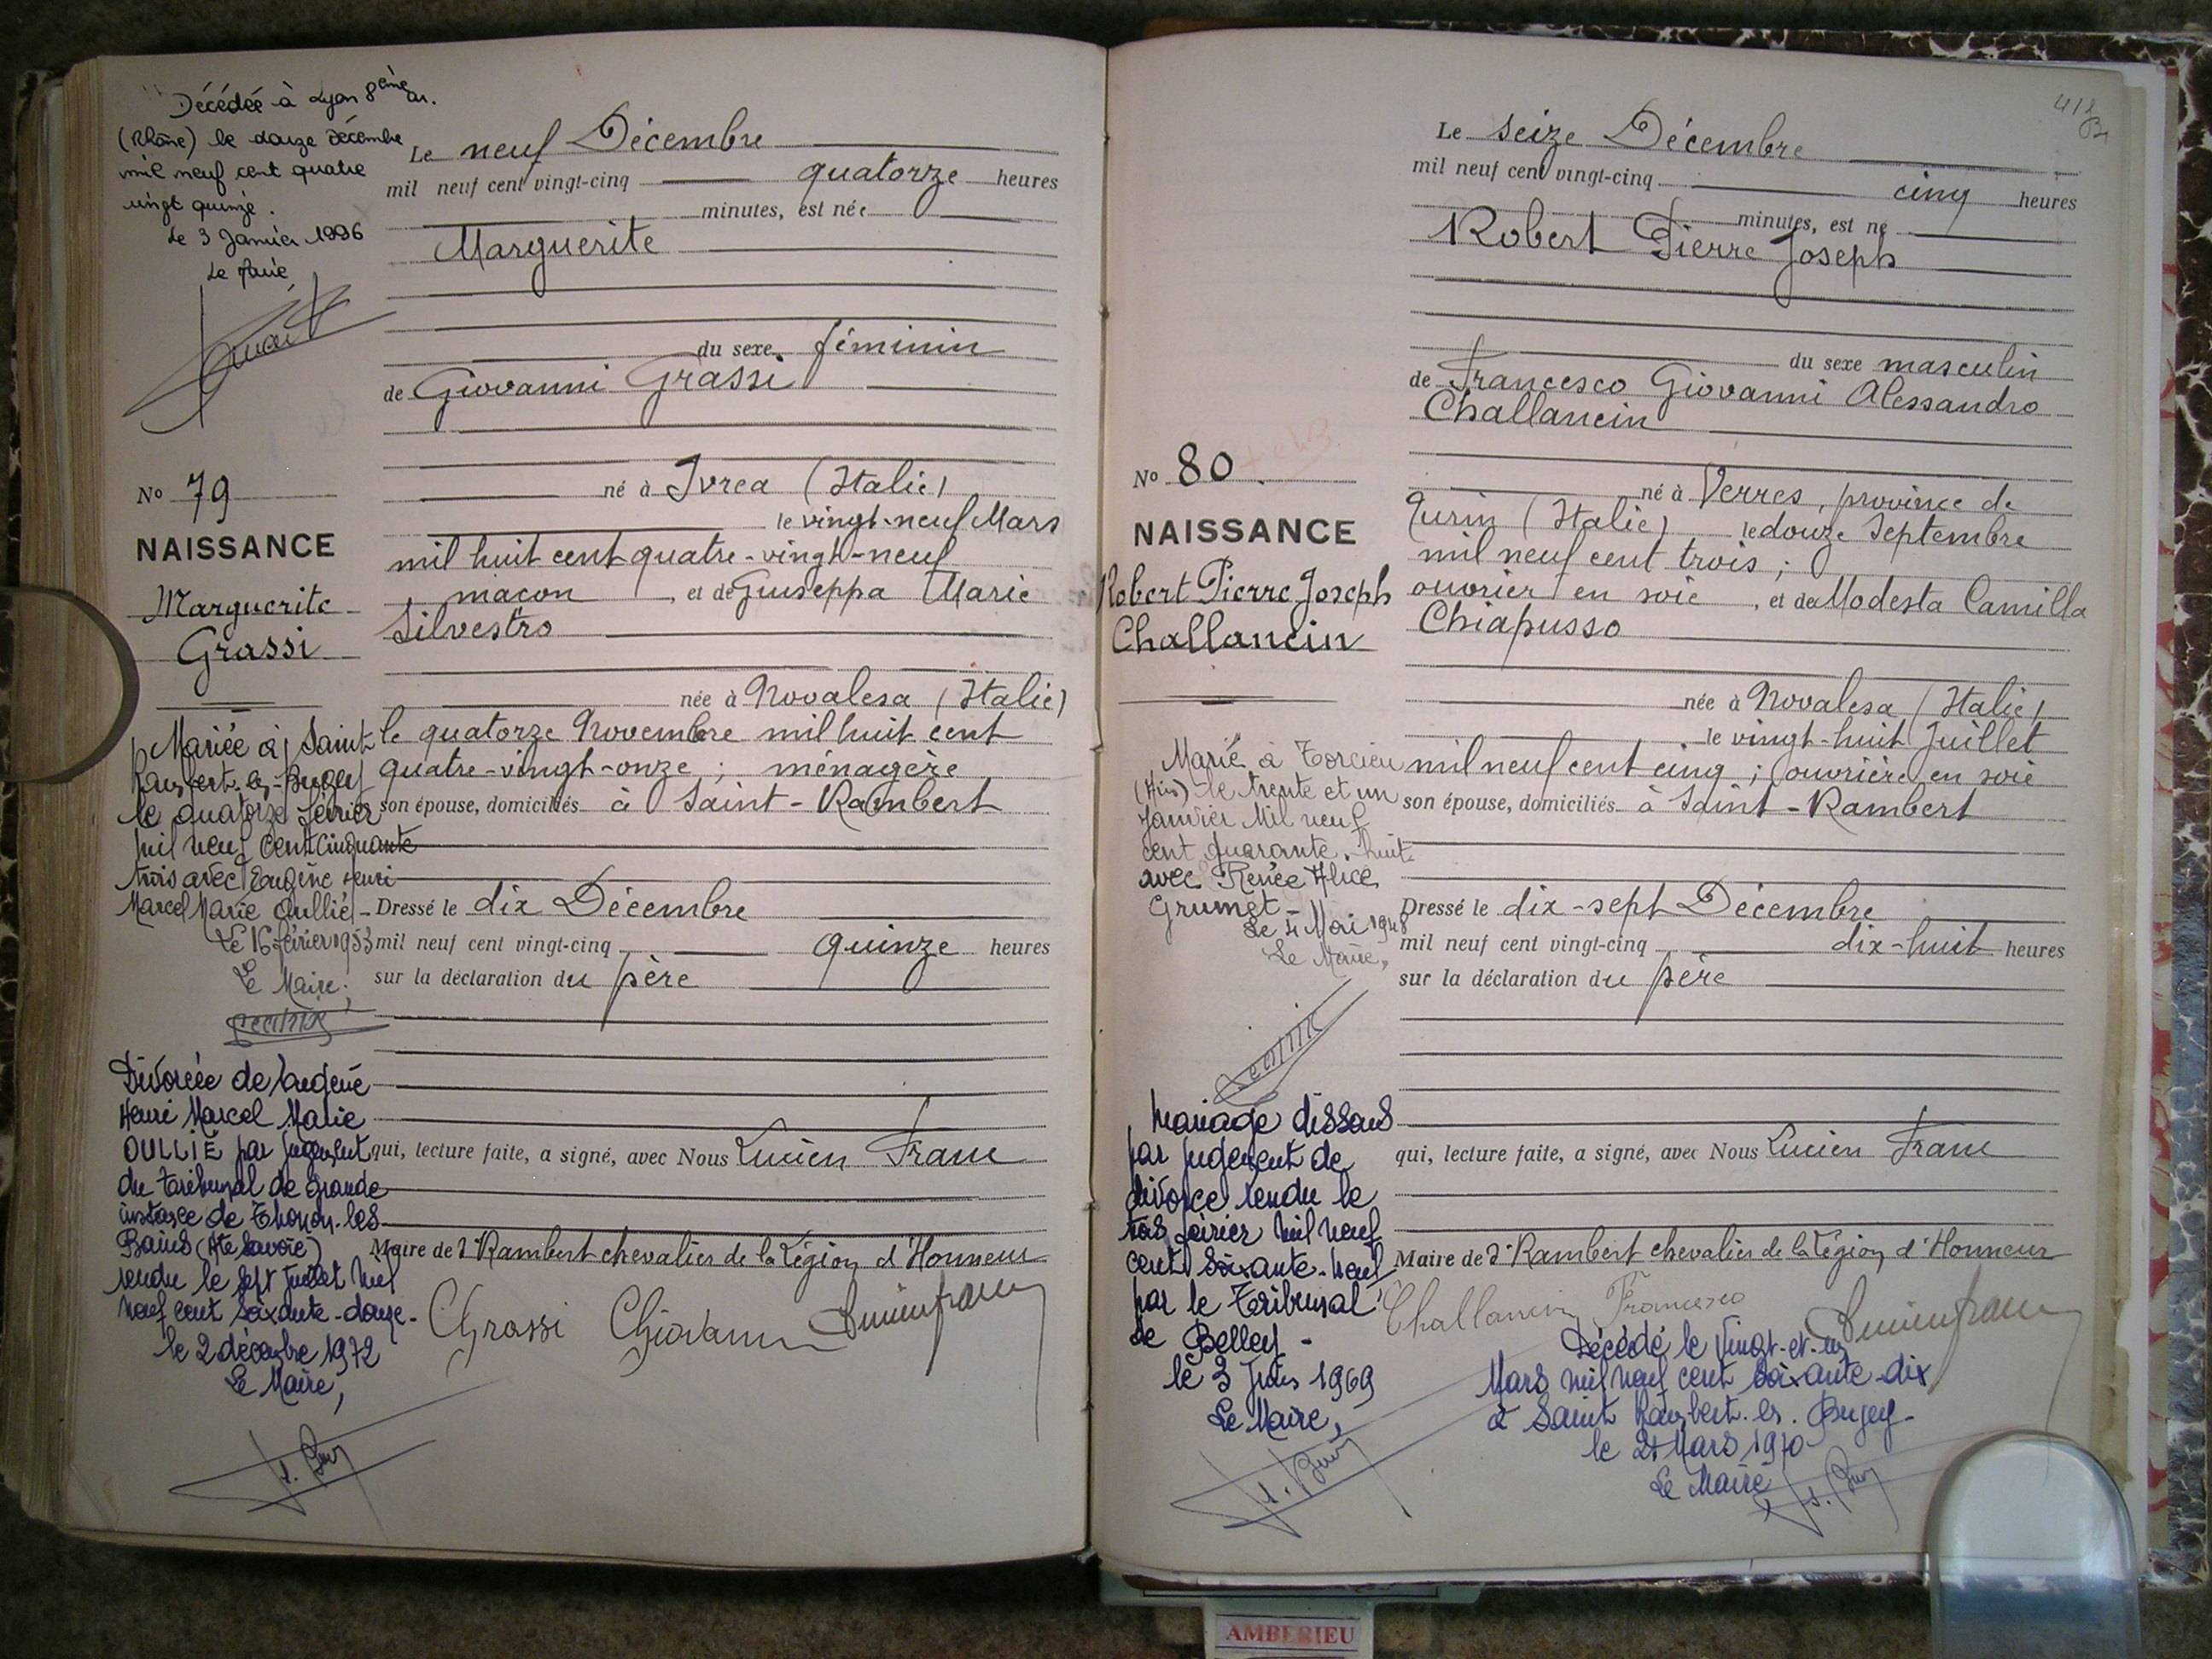 Décédée à Lyon 8ème ar.
(Rhône) le douze décembre
mil neuf cent quatre
vingt quinze.
Le 3 Janvier 1996
Le Maire
No 79
NAISSANCE
Marguerite
Grassi
Mariée à Saint
Rambert-en-Bugey
le quatorze février
mil neuf cent cinquante
trois avec Eugène Henri
Marcel Marie Oullié -
Le 16 février 1953
Le Maire,
Divorcée de Eugène
Henri Marcel Marie
OULLIÉ par jugement
du Tribunal de grande
instance de Thonon-les
Bains (Hte Savoie)
rendu le sept juillet mil
neuf cent soixante-douze.
le 2 décembre 1972
Le Maire,
Le neuf Décembre
mil neuf cent vingt-cinq quatorze heures
minutes, est née
Marguerite
du sexe féminin
de Giovanni Grassi
né à Ivrea (Italie)
le vingt-neuf Mars
mil huit cent quatre-vingt-neuf
maçon, et de Giuseppa Marie
Silvestro
née à Novalesa (Italie)
le quatorze Novembre mil huit cent
quatre-vingt-onze ; ménagère
son épouse, domiciliés à Saint-Rambert
Dressé le dix Décembre
mil neuf cent vingt-cinq quinze heures
sur la déclaration du père
qui, lecture faite, a signé, avec Nous Lucien Franc
Maire de St Rambert chevalier de la Légion d'Honneur
Grassi Giovanni Lucien franc
418
No 80.
NAISSANCE
Robert Pierre Joseph
Challancin
Marié à Torcieu
(Ain) le trente et un
Janvier Mil neuf
cent quarante-huit
avec Renée Alice
Grumet -
Le 4 Mai 1948
Le Maire,
Mariage dissous
par jugement de
divorce rendu le
trois février mil neuf
cent soixante-neuf
par le Tribunal
de Belley -
le 3 Juin 1969
Le Maire,
Le seize Décembre
mil neuf cent vingt-cinq cinq heures
minutes, est né
Robert Pierre Joseph
du sexe masculin
de Francesco Giovanni Alessandro
Challancin
né à Verres, province de
Turin (Italie) le douze Septembre
mil neuf cent trois ;
ouvrier en soie, et de Modesta Camilla
Chiapusso
née à Novalesa (Italie)
le vingt-huit Juillet
mil neuf cent cinq ; ouvrière en soie
son épouse, domiciliés à Saint-Rambert
Dressé le dix-sept Décembre
mil neuf cent vingt-cinq dix-huit heures
sur la déclaration du père
qui, lecture faite, a signé, avec Nous Lucien Franc
Maire de St Rambert chevalier de la Légion d'Honneur
Challancin Francesco Lucien franc
Décédé le vingt-et-un
Mars mil neuf cent soixante-dix
à Saint Rambert-en-Bugey-
le Mars 1970
Le Maire
AMBERIEU